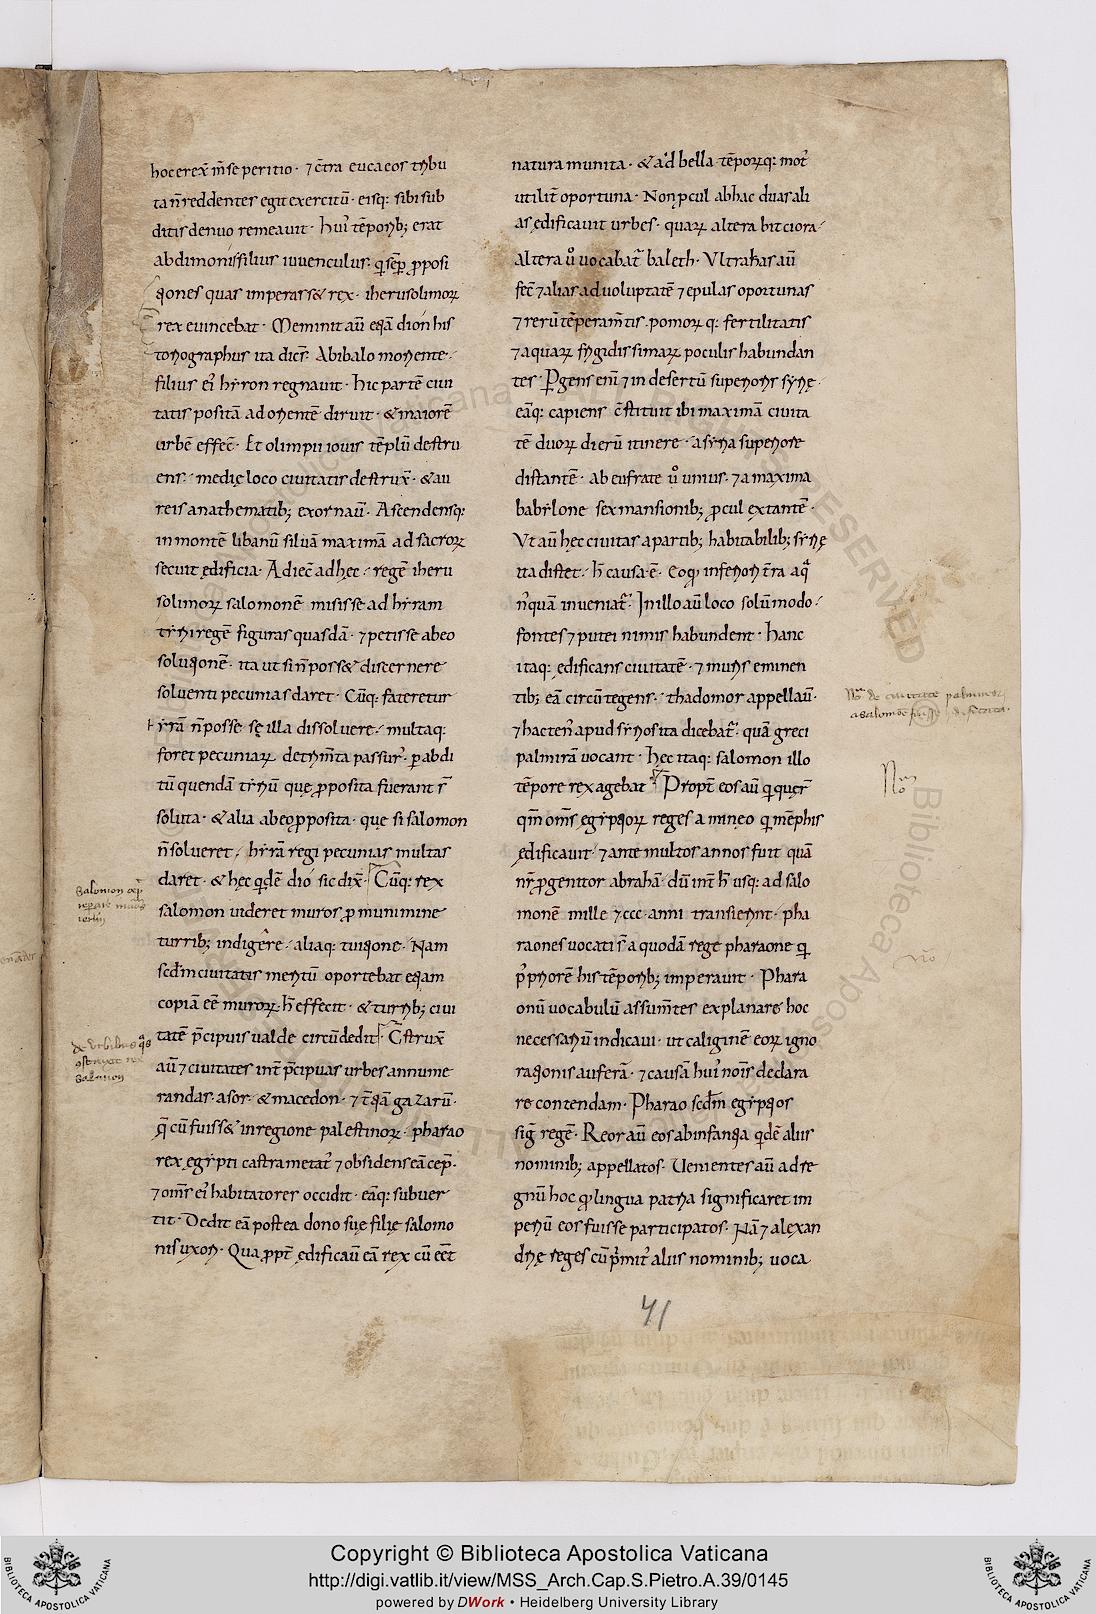 hoc erex̄ m̄se peritio · ⁊ c̄tra euca eos tribu
ta n̄ reddentes egit exercitū · eisq; sibi sub
ditis denuo remeauit · hui᾽ tēporib; erat
abdimonis filius iuuenculus · q̄ sēp ꝓposi
tiones quas imperass& rex · iherusolimoꝝ
rex euincebat · Meminit aū eqā dion his
toriographus ita dicēs · Abibalo moriente ·
filius ei᾽ hyron regnauit · hic partē ciui
tatis positā ad orientē diruit · & maiorē
urbē effec̄ · Et olimpii iouis tēplū destru
ens · medię loco ciuitatis destrux̄ · & au
reis anathematib; exornau̅ · Ascendensq;
in montē libanū siluā maximā ad sacroꝝ
secuit ędificia · Adiec̄ ad hęc · regē iheru
solimoꝝ salomonē misisse ad hyram
tyri regē figuras quasdā · ⁊ petisse ab eo
solutionē · ita ut si n̄ poss& discernere
soluenti pecunias daret · Cūq; fateretur
hyrā n̄ posse sę illa dissoluere · multaq;
foret pecuniaꝝ detrim̄ta passur᾽ · p abdi
tū quendā tyriū quę ꝓposita fuerant s̄
soluta · & alia ab eo ꝓposita · que si salomon
n̄ solueret · hyrā regi pecunias multas
daret · & hęc q̇dē dio sic dix̄ · Cūq; rex
salomon uideret muros ꝓ munimine
turrib; indigere · aliaq; tuitione · Nam
scd̄m ciuitatis meritū oportebat eqam
copiā eē muroꝝ · h̄ effecit · & turrib; ciui
tatē p̄cipuis ualde circūdedit · C̄strux̄
aū ⁊ ciuitates int̄ p̄cipuas urbes annume
randas · asor · & macedon · ⁊ t̄tiā gazarū ·
q̄ cū fuiss& in regione palestinoꝝ · pharao
rex egypti castra metat᾽ ⁊ obsidens eā cep̄ ·
⁊ om̄s ei᾽ habitatores occidit · eāq; subuer
tit · Dedit eā postea dono suę filię salomo
nis uxori · Qua ꝓpt̄ ędificau̅ eā rex cū eēt
natura munita · & ad bella tēpoꝝq; mot᾽
utilit̄ oportuna · Non ꝓcul ab hac duas ali
as ędificauit urbes · quaꝝ altera bitciora ·
altera u᾽o uocabat᾽ baleth · Ultra has aū
fec̄ ⁊ alias ad uoluptatē ⁊ epulas oportunas
⁊ rerū tēperam̄tis · pomoꝝq; fertilitatis
⁊ aquaꝝ frigidissimaꝝ poculis habundan
tes · Pgens eni̅ ⁊ in desertū superioris syrię ·
eāq; capiens c̄stituit ibi maximā ciuita
tē duoꝝ dierū itinere · a syria superiore
distantē · ab eufrate u᾽o unius · ⁊ a maxima
babylone sex mansionib; ꝓcul extantē ·
Ut aū hęc ciuitas a partib; habitabilib; syrię
ita distet · h̄ causa ē · Eo q̇ inferiori t̄ra aq̄
n̄quā inueniat᾽ · In illo aū loco solūmodo ·
fontes ⁊ putei nimis habundent · Hanc
itaq; ędificans ciuitatē · ⁊ muris eminen
tib; eā circūtegens · thadomor appellau̅ ·
⁊ hacten᾽ apud syrios ita dicebat᾽ · quā greci
palmirā uocant · hęc itaq; salomon illo
tēpore rex agebat · Propt̄ eos aū q̇ querr̄
qm̄ om̄s egyptioꝝ reges a mineo q̇ mēphis
ędificauit · ⁊ ante multos annos fuit quā
nr̄ ꝓgenitor abrahā · dū int̄ h̄ usq; ad salo
monē mille ⁊ ccc · anni transierint · pha
raones uocati s̄ a quodā rege pharaone q̇
p̄priorē his tēporib; imperauit · Phara
onū uocabulū assum̄tes explanare hoc
necessariū indicaui · ut caliginē eoꝝ igno
rationis auferā · ⁊ causā hui᾽ nois̄ declara
re contendam · Pharao scd̄m egyptios
sig᷑ regē · Reor aū eos ab infantia q̇dē aliis
nominib; appellatos · Uenientes aū ad re
gnū hoc q̇ lingua patria significaret im
periū eos fuisse participatos · Nā ⁊ alexan
drię reges cū p̄mit᾽ aliis nominib; uoca
de urbibus q̄s
rex
salomon
71
Copyright © Biblioteca Apostolica Vaticana
http://digi.vatlib.it/view/MSS_Arch.Cap.S.Pietro.A.39/0145
powered by DWork • Heidelberg University Library